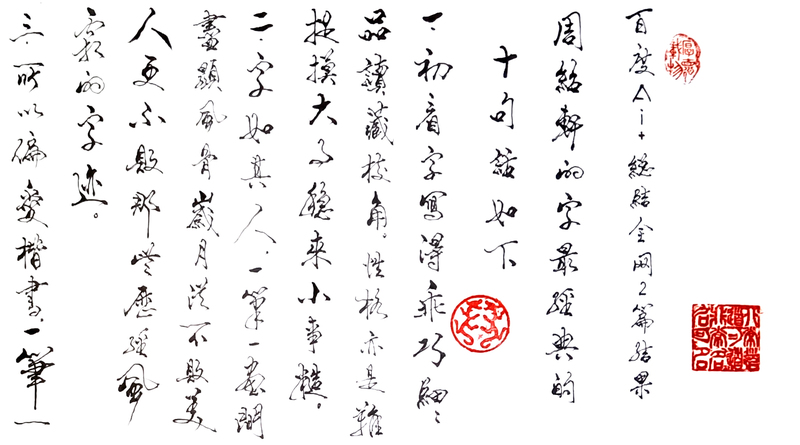 百度Ai+總結全网2篇結果
周紹軒的字最經典的
十句話如下
一·初看字寫得乖巧細〻
品讀藏棱角。性格亦是難
捉摸大事穩來小事糙。
二·字如其人,一筆一畫間
盡顯風骨歲月從不敗美
人更不敗那些歷經風
霜的字迹。
三·所以偏愛楷書,一筆一